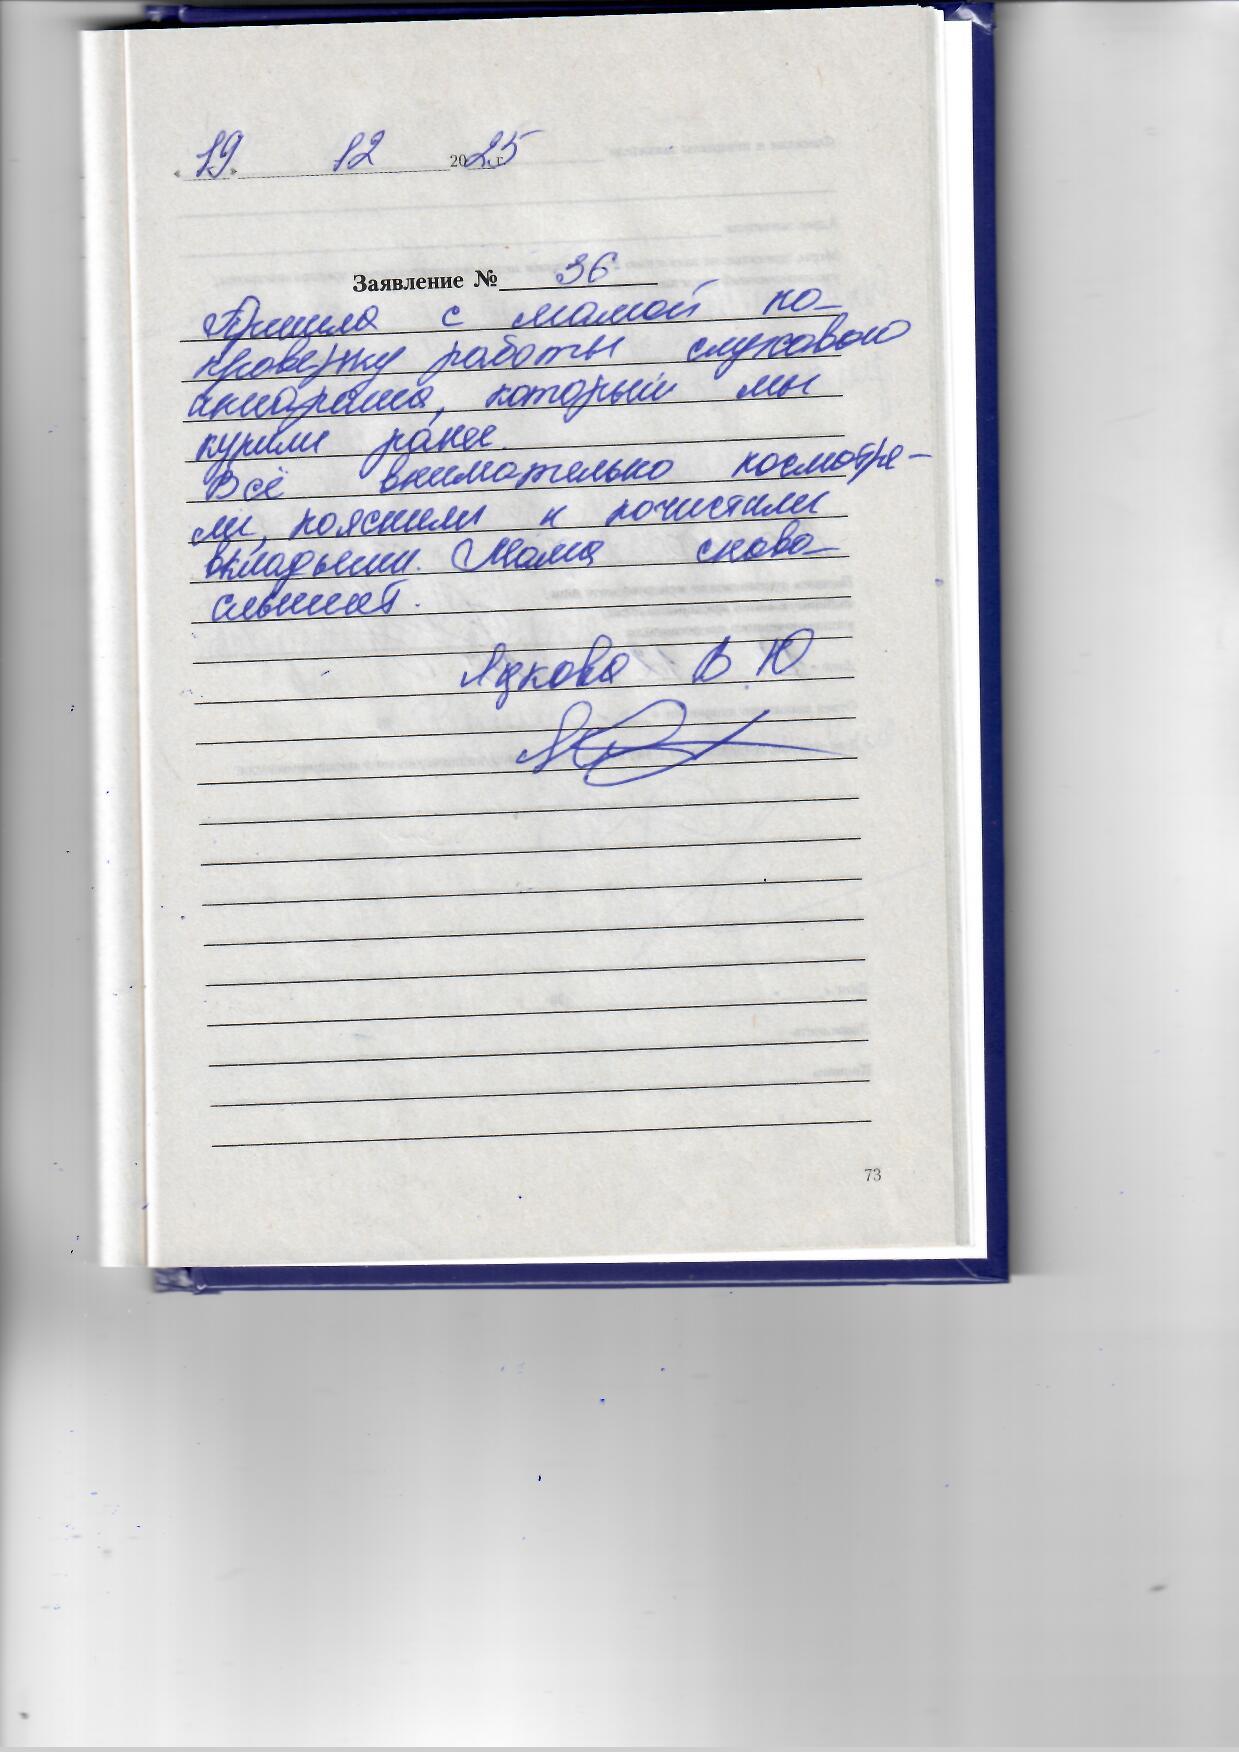 « 19 » 12 2025 г.
Заявление № 36
Пришла с мамой на
проверку работы слухового
аппарата, который мы
купили ранее.
Всё внимательно посмотре-
ли, пояснили и почистили
вкладыши. Мама снова
слышит.
Яцкова В Ю
73